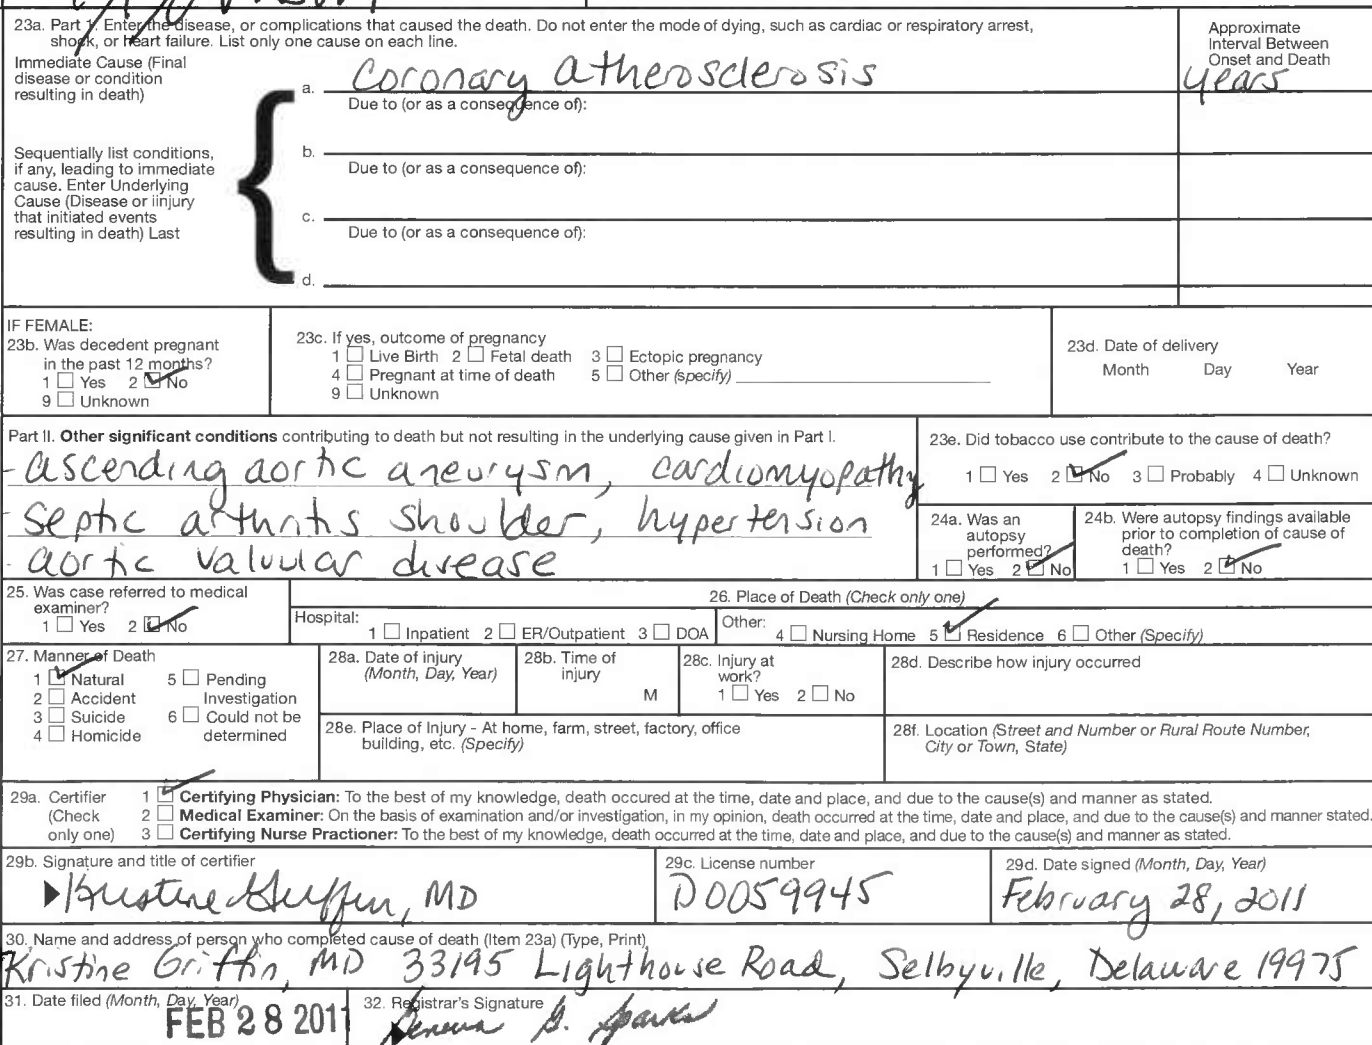 23a. Part 1. Enter the disease, or complications that caused the death. Do not enter the mode of dying, such as cardiac or respiratory arrest,
shock, or heart failure. List only one cause on each line.
Approximate
Interval Between
Onset and Death
Immediate Cause (Final
disease or condition
resulting in death)
a. Coronary atherosclerosis
years
Due to (or as a consequence of):
Sequentially list conditions,
if any, leading to immediate
cause. Enter Underlying
Cause (Disease or iinjury
that initiated events
resulting in death) Last
b.
Due to (or as a consequence of):
c.
Due to (or as a consequence of):
d.
IF FEMALE:
23b. Was decedent pregnant
in the past 12 months?
1 ☐ Yes 2 ☑ No
9 ☐ Unknown
23c. If yes, outcome of pregnancy
1 ☐ Live Birth 2 ☐ Fetal death 3 ☐ Ectopic pregnancy
4 ☐ Pregnant at time of death 5 ☐ Other (specify)
9 ☐ Unknown
23d. Date of delivery
Month Day Year
Part II. Other significant conditions contributing to death but not resulting in the underlying cause given in Part I.
- ascending aortic aneurysm, cardiomyopathy
- septic arthritis shoulder, hypertension
- aortic valvular disease
23e. Did tobacco use contribute to the cause of death?
1 ☐ Yes 2 ☑ No 3 ☐ Probably 4 ☐ Unknown
24a. Was an
autopsy
performed?
1 ☐ Yes 2 ☑ No
24b. Were autopsy findings available
prior to completion of cause of
death?
1 ☐ Yes 2 ☑ No
25. Was case referred to medical
examiner?
1 ☐ Yes 2 ☑ No
26. Place of Death (Check only one)
Hospital:
1 ☐ Inpatient 2 ☐ ER/Outpatient 3 ☐ DOA
Other:
4 ☐ Nursing Home 5 ☑ Residence 6 ☐ Other (Specify)
27. Manner of Death
1 ☑ Natural
2 ☐ Accident
3 ☐ Suicide
4 ☐ Homicide
5 ☐ Pending
Investigation
6 ☐ Could not be
determined
28a. Date of injury
(Month, Day, Year)
28b. Time of
injury
M
28c. Injury at
work?
1 ☐ Yes 2 ☐ No
28d. Describe how injury occurred
28e. Place of Injury - At home, farm, street, factory, office
building, etc. (Specify)
28f. Location (Street and Number or Rural Route Number,
City or Town, State)
29a. Certifier
(Check
only one)
1 ☑ Certifying Physician: To the best of my knowledge, death occured at the time, date and place, and due to the cause(s) and manner as stated.
2 ☐ Medical Examiner: On the basis of examination and/or investigation, in my opinion, death occurred at the time, date and place, and due to the cause(s) and manner stated.
3 ☐ Certifying Nurse Practioner: To the best of my knowledge, death occurred at the time, date and place, and due to the cause(s) and manner as stated.
29b. Signature and title of certifier
Kristine Griffin, MD
29c. License number
D0059945
29d. Date signed (Month, Day, Year)
February 28, 2011
30. Name and address of person who completed cause of death (Item 23a) (Type, Print)
Kristine Griffin, MD 33195 Lighthouse Road, Selbyville, Delaware 19975
31. Date filed (Month, Day, Year)
FEB 28 2011
32. Registrar's Signature
G. Sparks